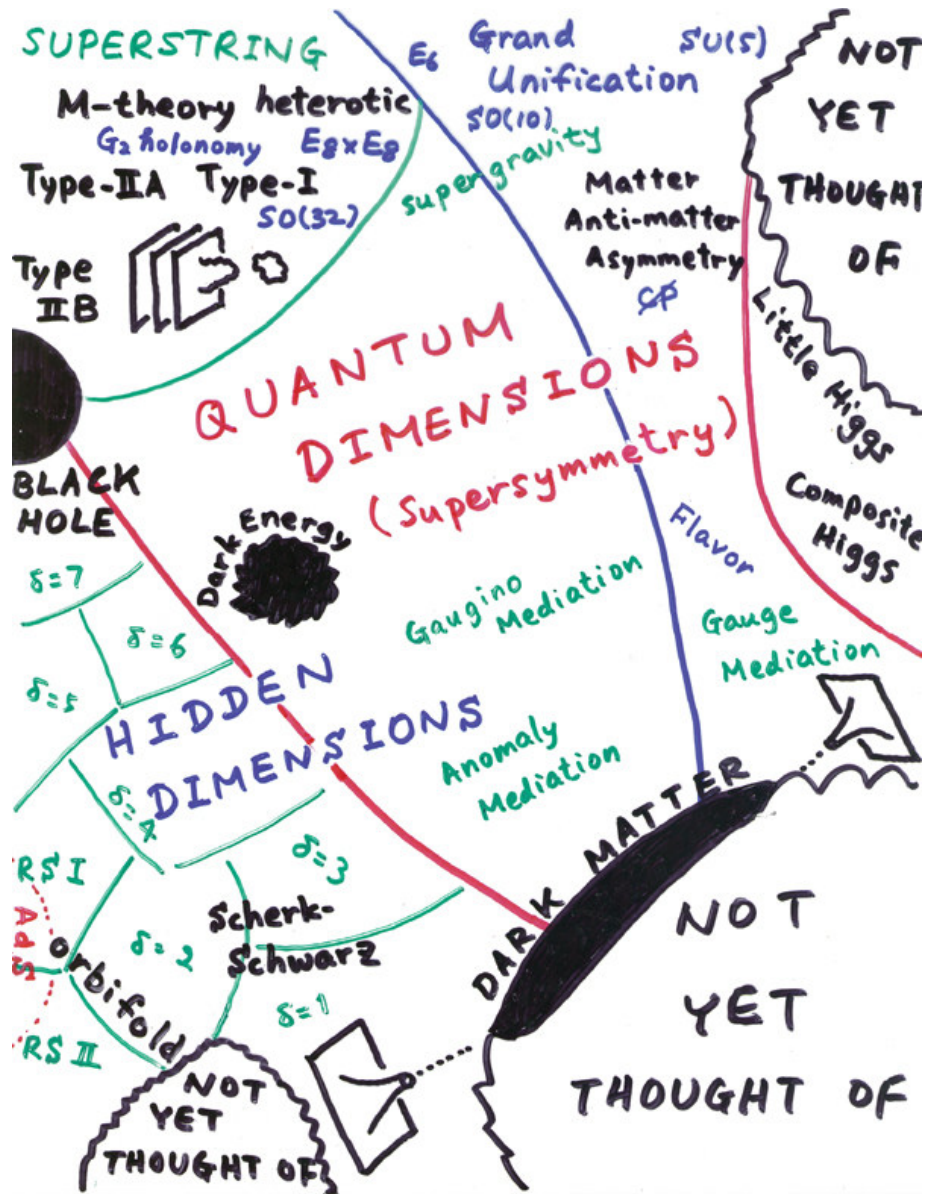 SUPERSTRING
M-theory heterotic
G₂ holonomy E₈×E₈
Type-IIA Type-I
SO(32)
Type
IIB
E₆
Grand
Unification
SU(5)
SO(10)
supergravity
Matter
Anti-matter
Asymmetry
C̸P̸
NOT
YET
THOUGHT
OF
Little Higgs
Composite
Higgs
QUANTUM
DIMENSIONS
(Supersymmetry)
BLACK
HOLE
Dark Energy
Flavor
Gaugino
Mediation
Gauge
Mediation
Anomaly
Mediation
δ=7
δ=6
δ=5
HIDDEN
DIMENSIONS
δ=4
δ=3
RS I
AdS
RS II
Orbifold
δ=2
Scherk-
Schwarz
δ=1
DARK MATTER
NOT
YET
THOUGHT OF
NOT
YET
THOUGHT OF